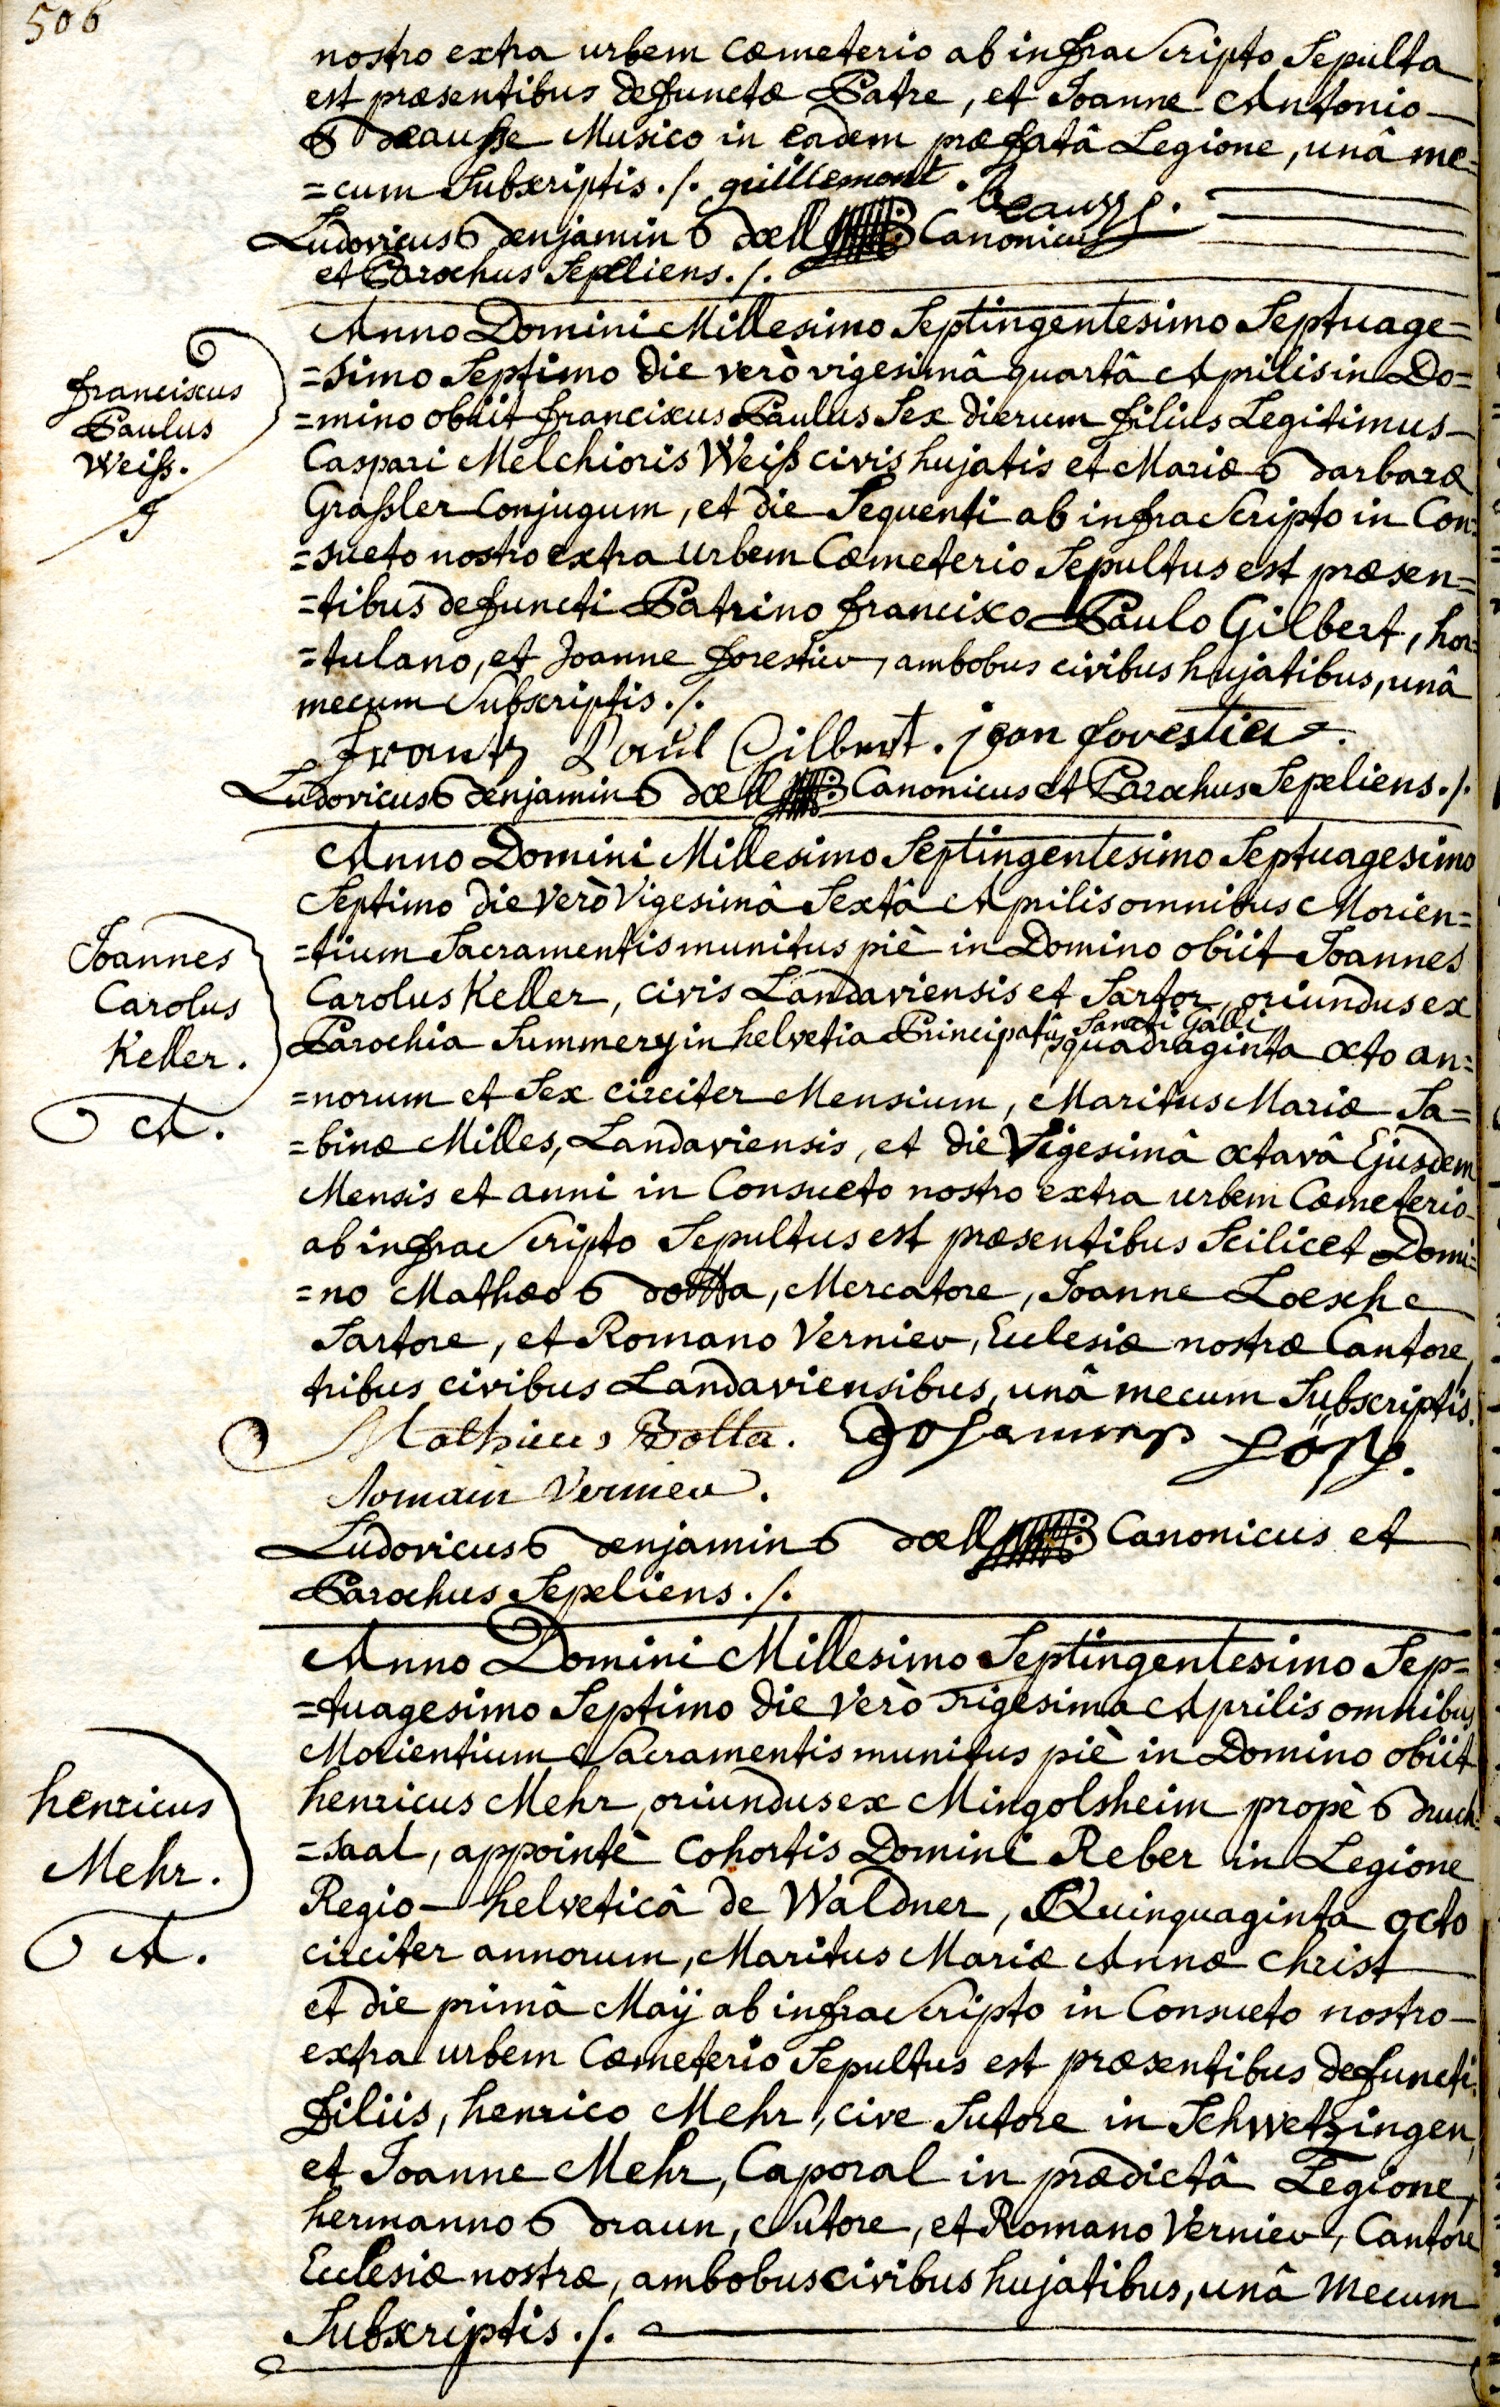 506
nostro extra urbem cœmeterio ab infra scripto Sepulta
est præsentibus defunctæ Patre, et Joanne Antonio
Beausse Musico in eadem præfatâ Legione, unâ me=
=cum Subscriptis ./. guillemont. Beausse.
Ludovicus Benjamin Boell Canonicus
et Parochus Sepeliens ./.
franciscus
Paulus
Weiß.
Anno Domini Millesimo Septingentesimo Septuage=
=simo Septimo die verò vigesimâ quartâ Aprilis in Do=
=mino obiit franciscus Paulus Sex dierum filius Legitimus
Caspari Melchioris Weiß civis hujatis et Mariæ Barbaræ
Graßler Conjugum, et die Sequenti ab infra scripto in Con=
=sueto nostro extra urbem Cœmeterio Sepultus est præsen=
=tibus defuncti Patrino francisco Paulo Gilbert, hor=
=tulano, et Joanne forestier, ambobus civibus hujatibus, unâ
mecum Subscriptis ./.
frantz Paul Gilbert. jean forestier.
Ludovicus Benjamin Boell Canonicus et Parochus Sepeliens ./.
Joannes
Carolus
Keller.
A.
Anno Domini Millesimo Septingentesimo Septuagesimo
Septimo die verò Vigesimâ Sextâ Aprilis omnibus Morien=
=tium Sacramentis munitus piè in Domino obiit Joannes
Carolus Keller, civis Landaviensis et Sartor, oriundus ex
Sancti Galli
Parochia Summery in helvetia Principatûs quadraginta octo an=
=norum et Sex circiter Mensium, Maritus Mariæ Sa=
=binæ Milles, Landaviensis, et die Vigesimâ octavâ Ejusdem
Mensis et anni in Consueto nostro extra urbem Cœmeterio
ab infra scripto Sepultus est præsentibus Scilicet Domi=
=no Mathæo Botta, Mercatore, Joanne Loesch
Sartore, et Romano Vernier, Ecclesiæ nostræ Cantore,
tribus civibus Landaviensibus, unâ mecum Subscriptis.
Mathieus Botta. Johannes Lösch.
Romain Vernier.
Ludovicus Benjamin Boell Canonicus et
Parochus Sepeliens ./.
henricus
Mehr.
A.
Anno Domini Millesimo Septingentesimo Sep=
=tuagesimo Septimo die Verò Trigesima Aprilis omnibus
Morientium Sacramentis munitus piè in Domino obiit
henricus Mehr, oriundus ex Mingolsheim propè Bruch=
=saal, appointè Cohortis Domini Reber in Legione
Regio-helveticâ de Waldner, Quinquaginta octo
circiter annorum, Maritus Mariæ Annæ Christ
et die primâ Maÿ ab infra scripto in Consueto nostro
extra urbem Cœmeterio Sepultus est præsentibus defuncti
filiis, henrico Mehr, cive Sutore in Schwetzingen,
et Joanne Mehr, Caporal in prædictâ Legione,
hermanno Braun, Sutore, et Romano Vernier, Cantore
Ecclesiæ nostræ, ambobus civibus hujatibus, unâ mecum
Subscriptis ./.